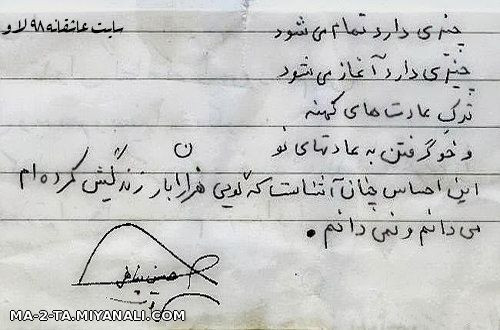 سایت عاشقانه ۹۸ لاو
چیزی دارد تمام می شود
چیزی دارد آغاز می شود
ترکِ عادت های کهنه
و خو گرفتن به عادتهای نو
این احساس چنان آشناست که گویی هزاران بار زندگیش کرده ام
می دانم و نمی دانم .
حسین پناهی
MA-2-TA.MIYANALI.COM